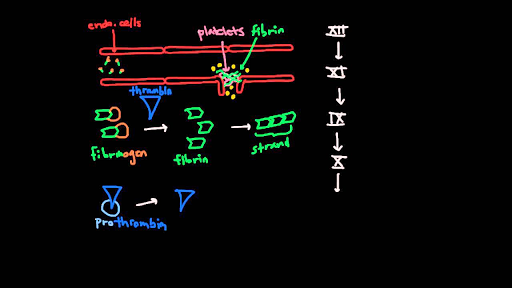 endo. cells
platelets
fibrin
thrombin
fibrinogen
fibrin
strand
prothrombin
XII
XI
IX
X